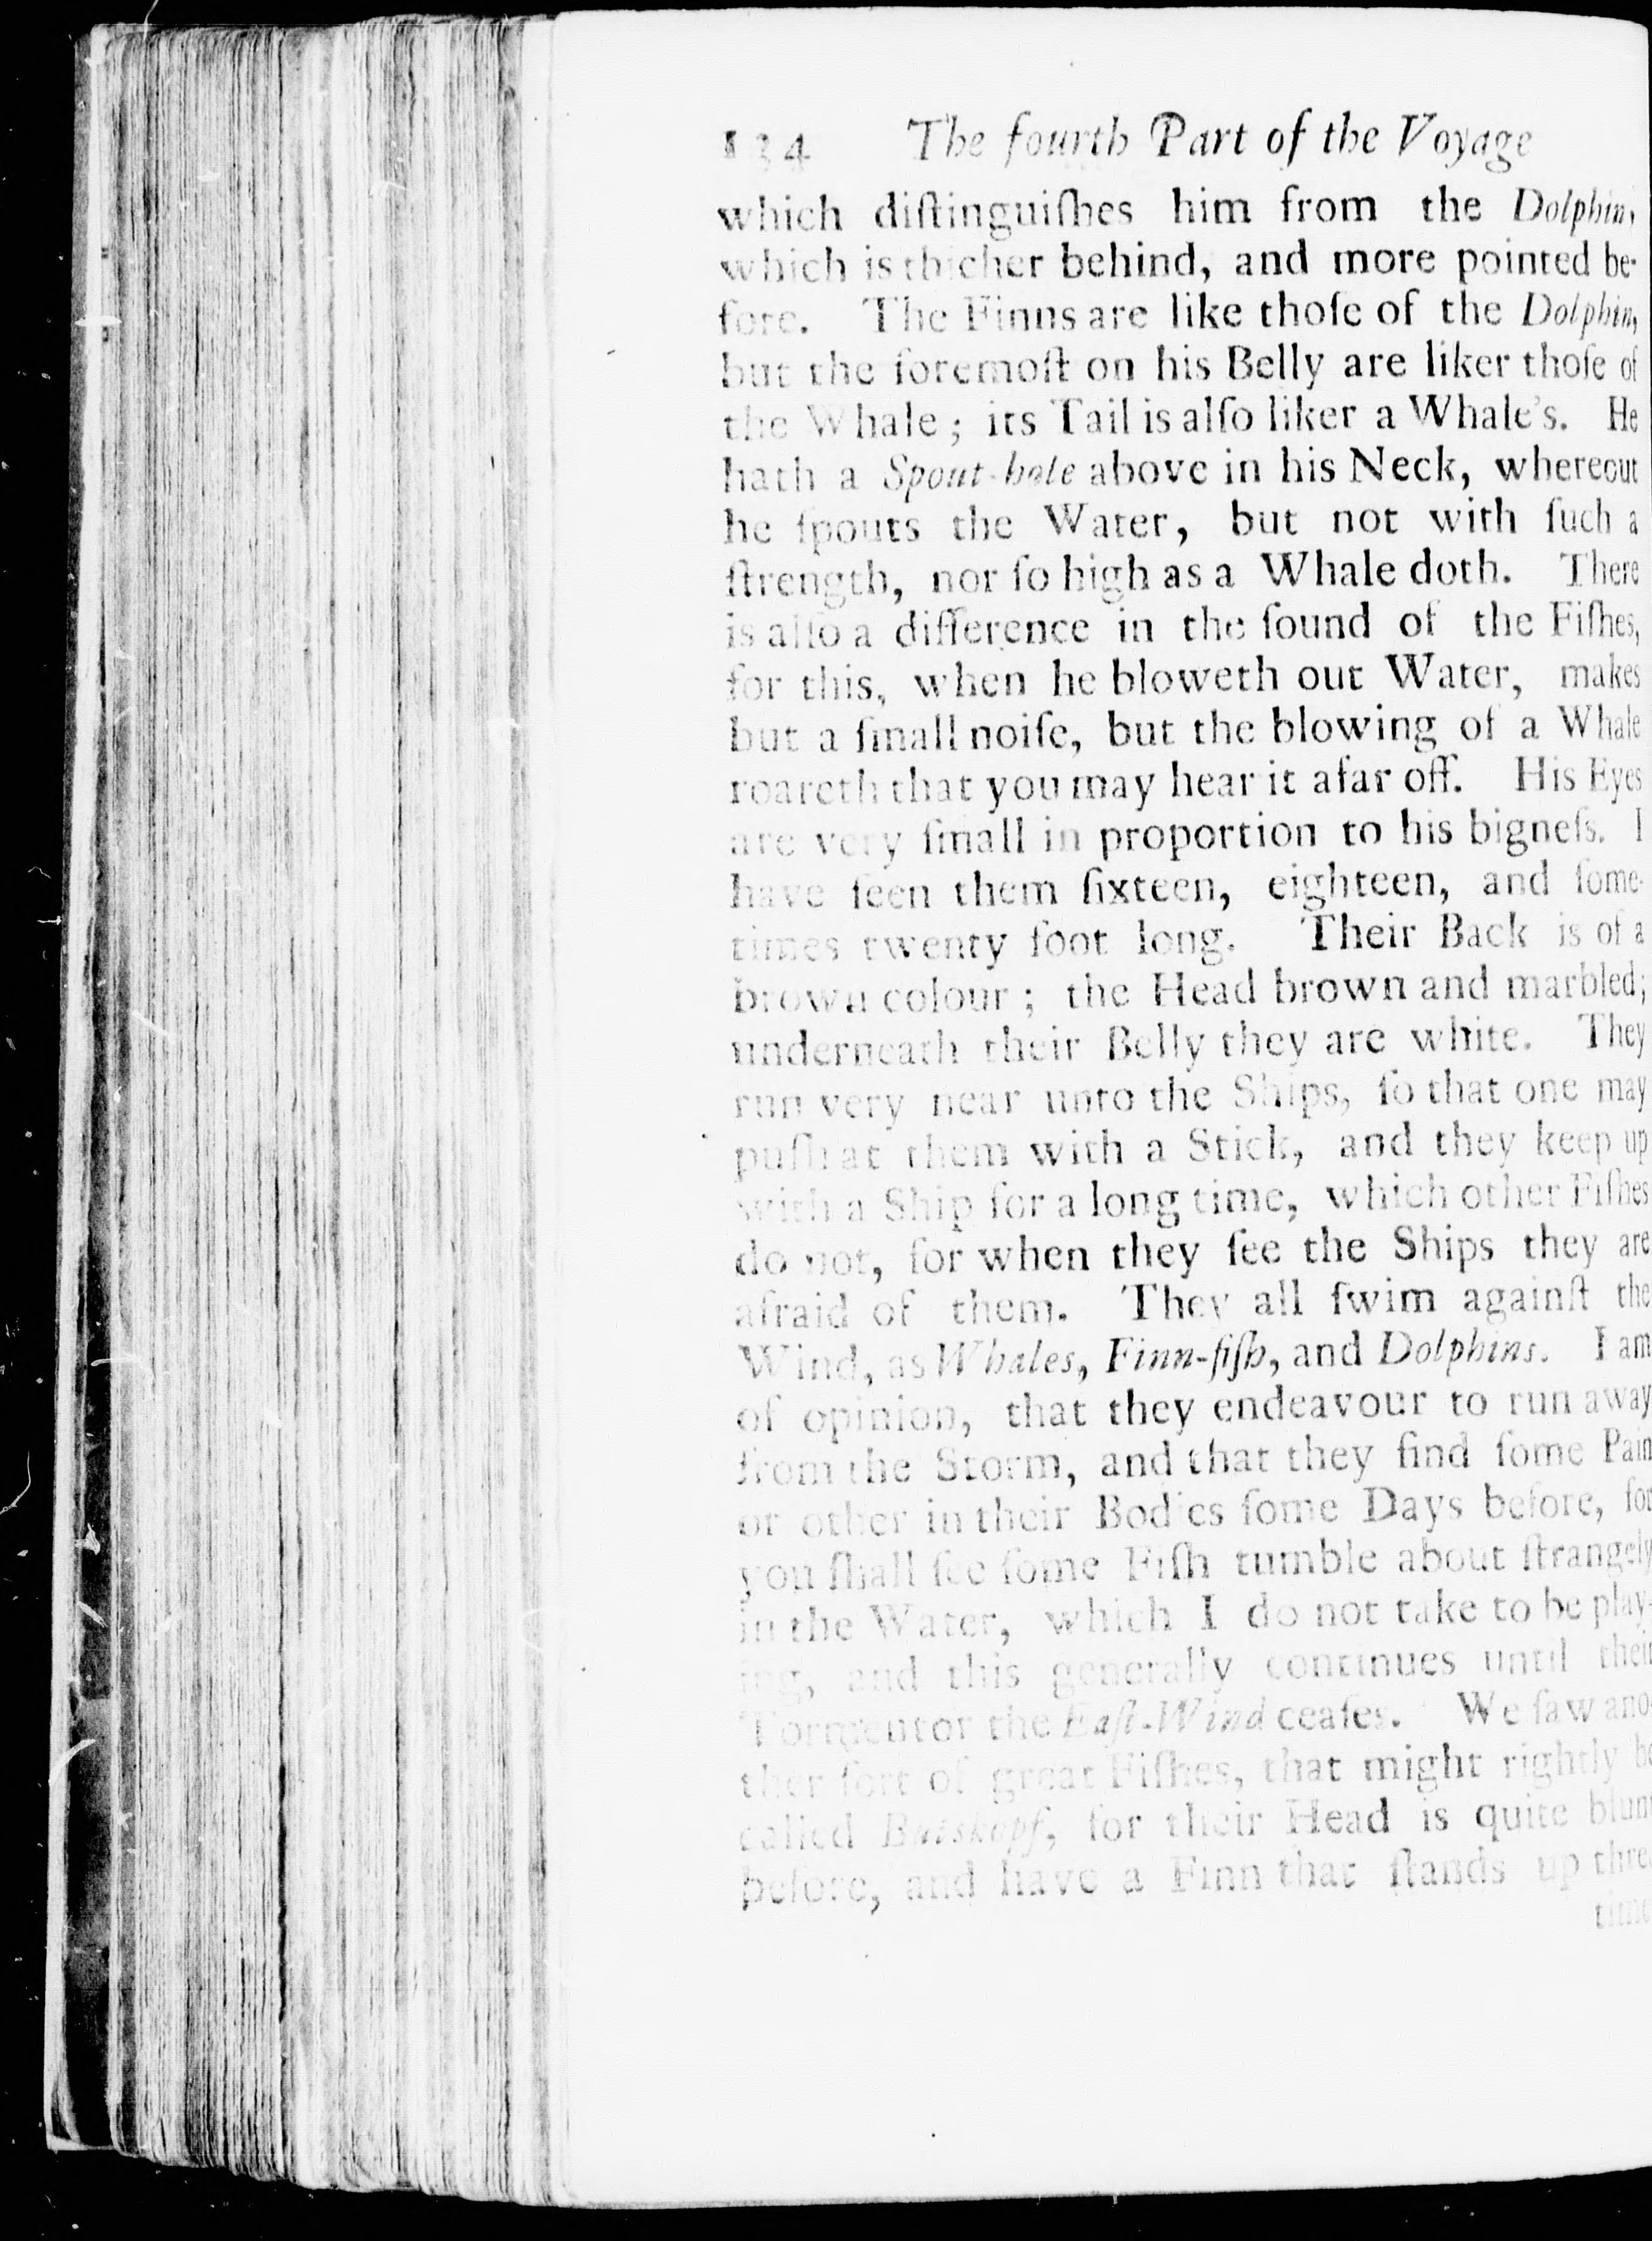 134 The fourth Part of the Voyage
which diſtinguiſhes him from the Dolphin,
which is thicher behind, and more pointed be-
fore. The Finns are like thoſe of the Dolphin,
but the foremoſt on his Belly are liker thoſe of
the Whale; its Tail is alſo liker a Whale's. He
hath a Spout-hole above in his Neck, whereout
he ſpouts the Water, but not with ſuch a
ſtrength, nor ſo high as a Whale doth. There
is alſo a difference in the ſound of the Fiſhes,
for this, when he bloweth out Water, makes
but a ſmall noiſe, but the blowing of a Whale
roareth that you may hear it afar off. His Eyes
are very ſmall in proportion to his bigneſs. I
have ſeen them ſixteen, eighteen, and ſome-
times twenty foot long. Their Back is of a
brown colour; the Head brown and marbled;
underneath their Belly they are white. They
run very near unto the Ships, ſo that one may
puſh at them with a Stick, and they keep up
with a Ship for a long time, which other Fiſhes
do not, for when they ſee the Ships they are
afraid of them. They all ſwim againſt the
Wind, as Whales, Finn-fiſh, and Dolphins. I am
of opinion, that they endeavour to run away
from the Storm, and that they find ſome Pain
or other in their Bodies ſome Days before, for
you ſhall ſee ſome Fiſh tumble about ſtrangely
in the Water, which I do not take to be play-
ing, and this generally continues until their
Tormentor the Eaſt-Wind ceaſes. We ſaw ano-
ther ſort of great Fiſhes, that might rightly be
called Butskopf, for their Head is quite blunt
before, and have a Finn that ſtands up three
time